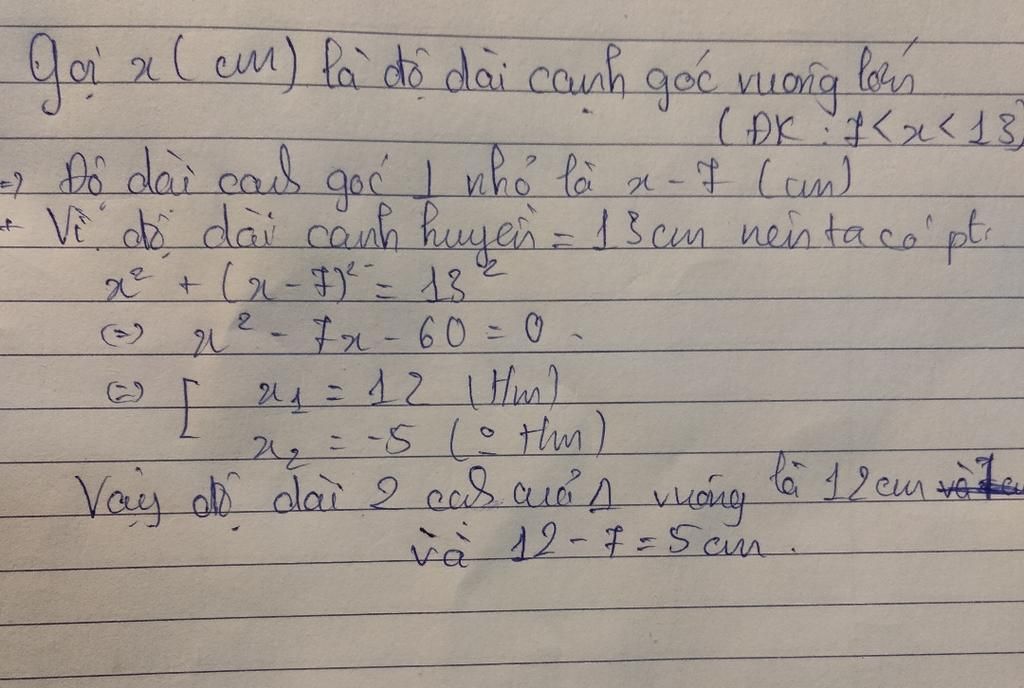 Gọi x (cm) là độ dài cạnh góc vuông lớn
(ĐK : 7 < x < 13)
=> Độ dài cah góc ⊥ nhỏ là x - 7 (cm)
+ Vì độ dài cạnh huyền = 13cm nên ta có pt:
x² + (x - 7)² = 13²
(=) x² - 7x - 60 = 0
(=) [ x₁ = 12 (thm)
x₂ = -5 (o thm)
Vậy độ dài 2 cah của Δ vuông là 12cm
và 12 - 7 = 5cm.